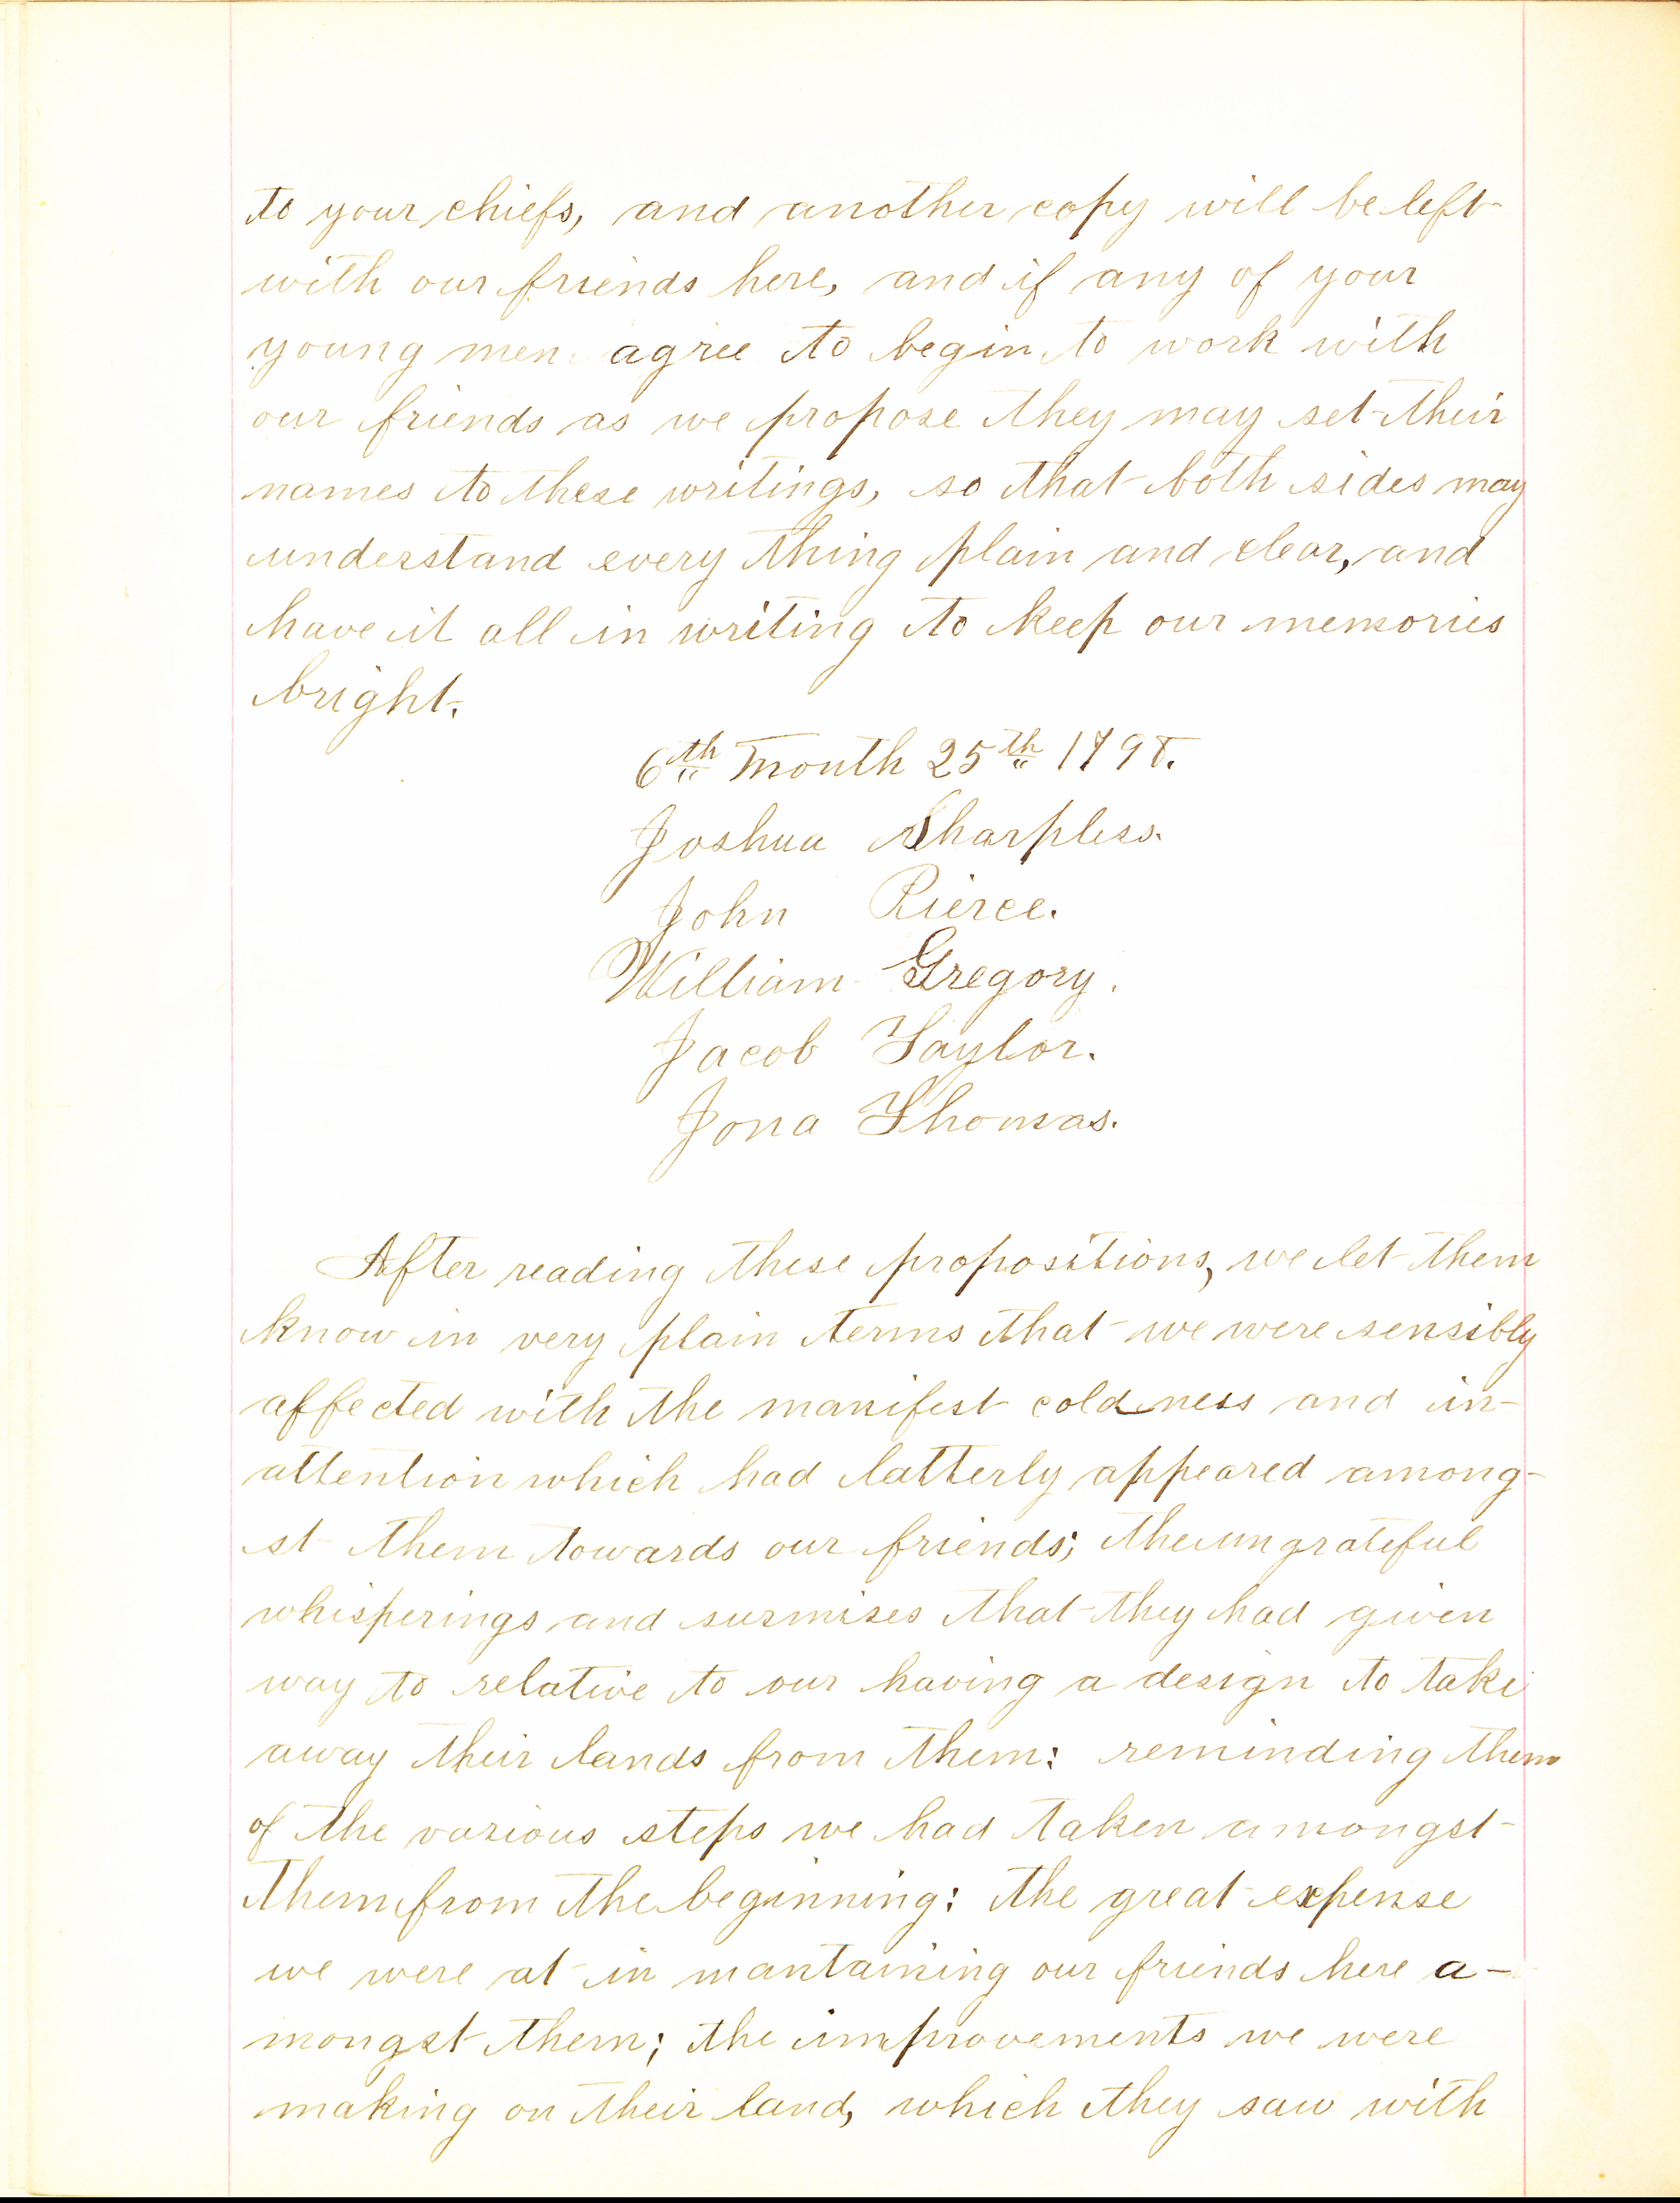 to your chiefs, and another copy will be left
with our friends here, and if any of your
young men agree to begin to work with
our friends as we propose they may set their
names to these writings, so that both sides may
understand every thing plain and clear, and
have it all in writing to keep our memories
bright.
6th Month 25th 1798.
Joshua Sharpless.
John Pierce.
William Gregory.
Jacob Taylor.
Jona Thomas.
After reading these propositions, we let them
know in very plain terms that we were sensibly
affected with the manifest coldness and in-
attention which had latterly appeared among-
st them towards our friends; the ungrateful
whisperings and surmises that they had given
way to relative to our having a design to take
away their lands from them: reminding them
of the various steps we had taken amongst
them from the beginning: the great expense
we were at in mantaining our friends here a-
mongst them; the improvements we were
making on their land, which they saw with